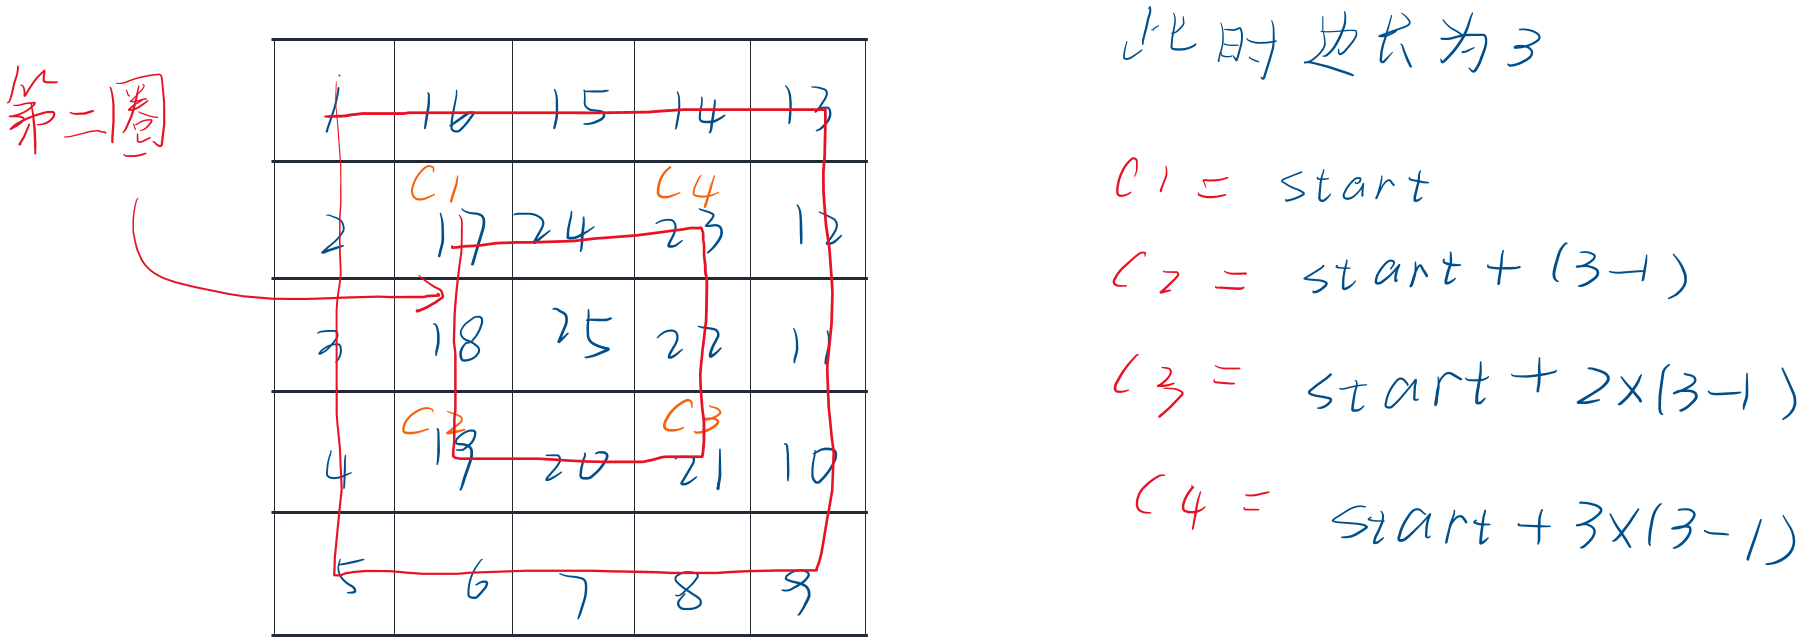 第二圈
1 16 15 14 13
C1 C4
2 17 24 23 12
3 18 25 22 11
C2 C3
4 19 20 21 10
5 6 7 8 9
此时边长为3
C1 = start
C2 = start + (3-1)
C3 = start + 2×(3-1)
C4 = start + 3×(3-1)